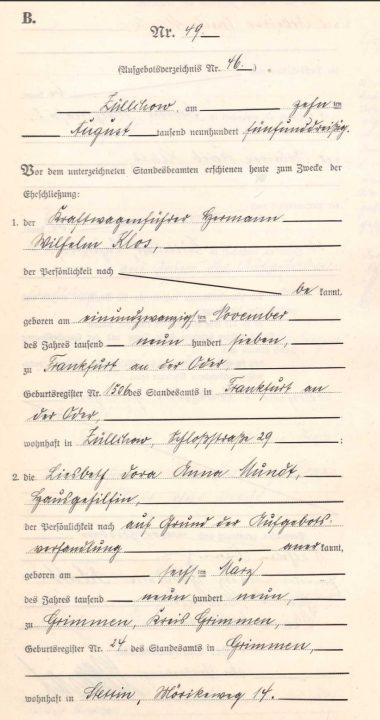 B.
Nr. 49.
(Aufgebotsverzeichnis Nr. 46.)
Züllchow, am zehn ten
August tausend neunhundert fünfunddreißig.
Vor dem unterzeichneten Standesbeamten erschienen heute zum Zwecke der
Eheschließung:
1. der Kraftwagenführer Hermann
Wilhelm Klos,
der Persönlichkeit nach
be kannt,
geboren am einundzwanzigsten November
des Jahres tausend neun hundert sieben,
zu Frankfurt an der Oder,
Geburtsregister Nr. 1506 des Standesamts in Frankfurt an
der Oder,
wohnhaft in Züllchow, Schloßstraße 29 ;
2. die Liesbeth Dora Anna Mundt,
Hausgehilfin,
der Persönlichkeit nach auf Grund der Aufgebots-
verhandlung aner kannt,
geboren am sechsten März
des Jahres tausend neun hundert neun,
zu Grimmen, Kreis Grimmen,
Geburtsregister Nr. 24 des Standesamts in Grimmen,
wohnhaft in Stettin, Mörikeweg 14.